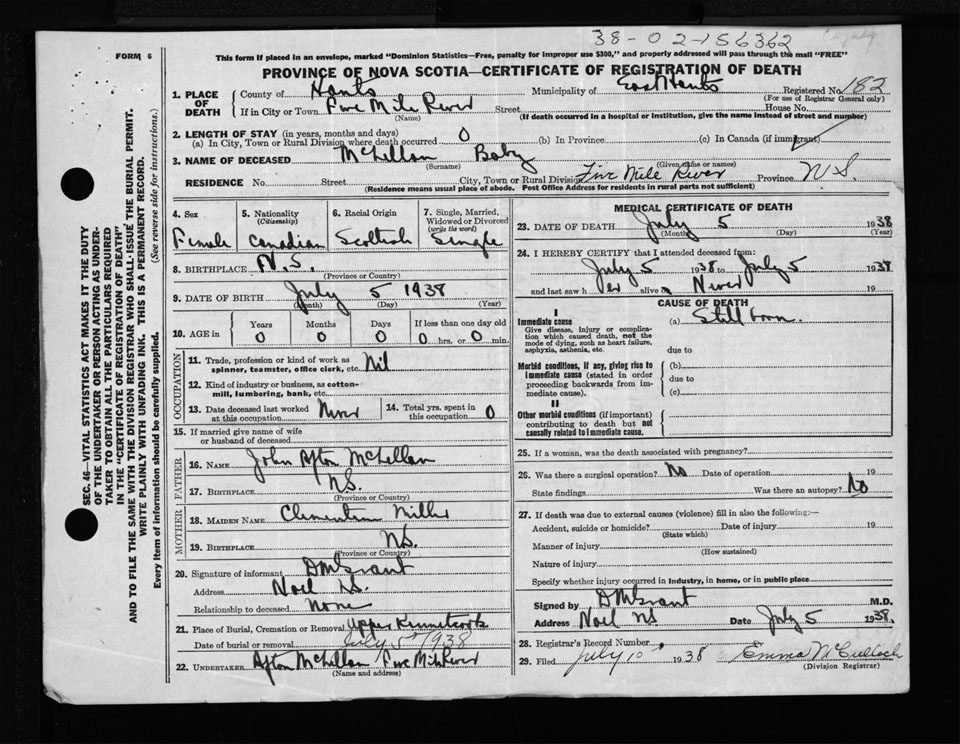 38-02-156362
FORM 6
This form if placed in an envelope, marked "Dominion Statistics—Free, penalty for improper use $300," and properly addressed will pass through the mail "FREE"
PROVINCE OF NOVA SCOTIA—CERTIFICATE OF REGISTRATION OF DEATH
SEC. 46—VITAL STATISTICS ACT MAKES IT THE DUTY
OF THE UNDERTAKER OR PERSON ACTING AS UNDER-
TAKER TO OBTAIN ALL THE PARTICULARS REQUIRED
IN THE "CERTIFICATE OF REGISTRATION OF DEATH"
AND TO FILE THE SAME WITH THE DIVISION REGISTRAR WHO SHALL ISSUE THE BURIAL PERMIT.
WRITE PLAINLY WITH UNFADING INK. THIS IS A PERMANENT RECORD.
Every item of information should be carefully supplied. (See reverse side for instructions.)
1. PLACE OF DEATH County of Hants Municipality of East Hants Registered No. 182
(For use of Registrar General only)
If in City or Town Five Mile River Street House No.
(Name) (If death occurred in a hospital or institution, give the name instead of street and number)
2. LENGTH OF STAY (in years, months and days)
(a) In City, Town or Rural Division where death occurred 0 (b) In Province (c) In Canada (if immigrant)
3. NAME OF DECEASED McLellan Baby
(Surname) (Given name or names)
RESIDENCE No. Street City, Town or Rural Division Five Mile River Province N.S.
(Residence means usual place of abode. Post Office Address for residents in rural parts not sufficient)
4. Sex 5. Nationality (Citizenship) 6. Racial Origin 7. Single, Married, Widowed or Divorced (write the word)
Female Canadian Scottish Single
8. BIRTHPLACE N.S.
(Province or Country)
9. DATE OF BIRTH July 5 1938
(Month) (Day) (Year)
10. AGE in Years Months Days If less than one day old
0 0 0 0 hrs. or 0 min.
OCCUPATION
11. Trade, profession or kind of work as spinner, teamster, office clerk, etc. Nil
12. Kind of industry or business, as cotton-mill, lumbering, bank, etc.
13. Date deceased last worked at this occupation Never 14. Total yrs. spent in this occupation 0
15. If married give name of wife or husband of deceased
FATHER
16. NAME John Afton McLellan
17. BIRTHPLACE N.S.
(Province or Country)
MOTHER
18. MAIDEN NAME Clementina Miller
19. BIRTHPLACE N.S.
(Province or Country)
20. Signature of informant DMGrant
Address Noel N.S.
Relationship to deceased None
21. Place of Burial, Cremation or Removal Upper Kennetcook
Date of burial or removal July 5th 1938
22. UNDERTAKER Afton McLellan Five Mile River
(Name and address)
MEDICAL CERTIFICATE OF DEATH
23. DATE OF DEATH July 5 1938
(Month) (Day) (Year)
24. I HEREBY CERTIFY that I attended deceased from:
July 5 1938 to July 5 1938
and last saw her alive on Never 19
CAUSE OF DEATH
I
Immediate cause (a) Still born.
Give disease, injury or complica-
tion which caused death, not the
mode of dying, such as heart failure,
asphyxia, asthenia, etc. due to
Morbid conditions, if any, giving rise to (b)
immediate cause (stated in order due to
proceeding backwards from im-
mediate cause). (c)
II
Other morbid conditions (if important)
contributing to death but not
causally related to immediate cause.
25. If a woman, was the death associated with pregnancy?
26. Was there a surgical operation? No Date of operation 19
State findings Was there an autopsy? No
27. If death was due to external causes (violence) fill in also the following:—
Accident, suicide or homicide? Date of injury 19
(State which)
Manner of injury
(How sustained)
Nature of injury
Specify whether injury occurred in industry, in home, or in public place
Signed by DMGrant M.D.
Address Noel NS Date July 5 1938.
28. Registrar's Record Number
29. Filed July 10 1938 Emma McCulloch
(Division Registrar)